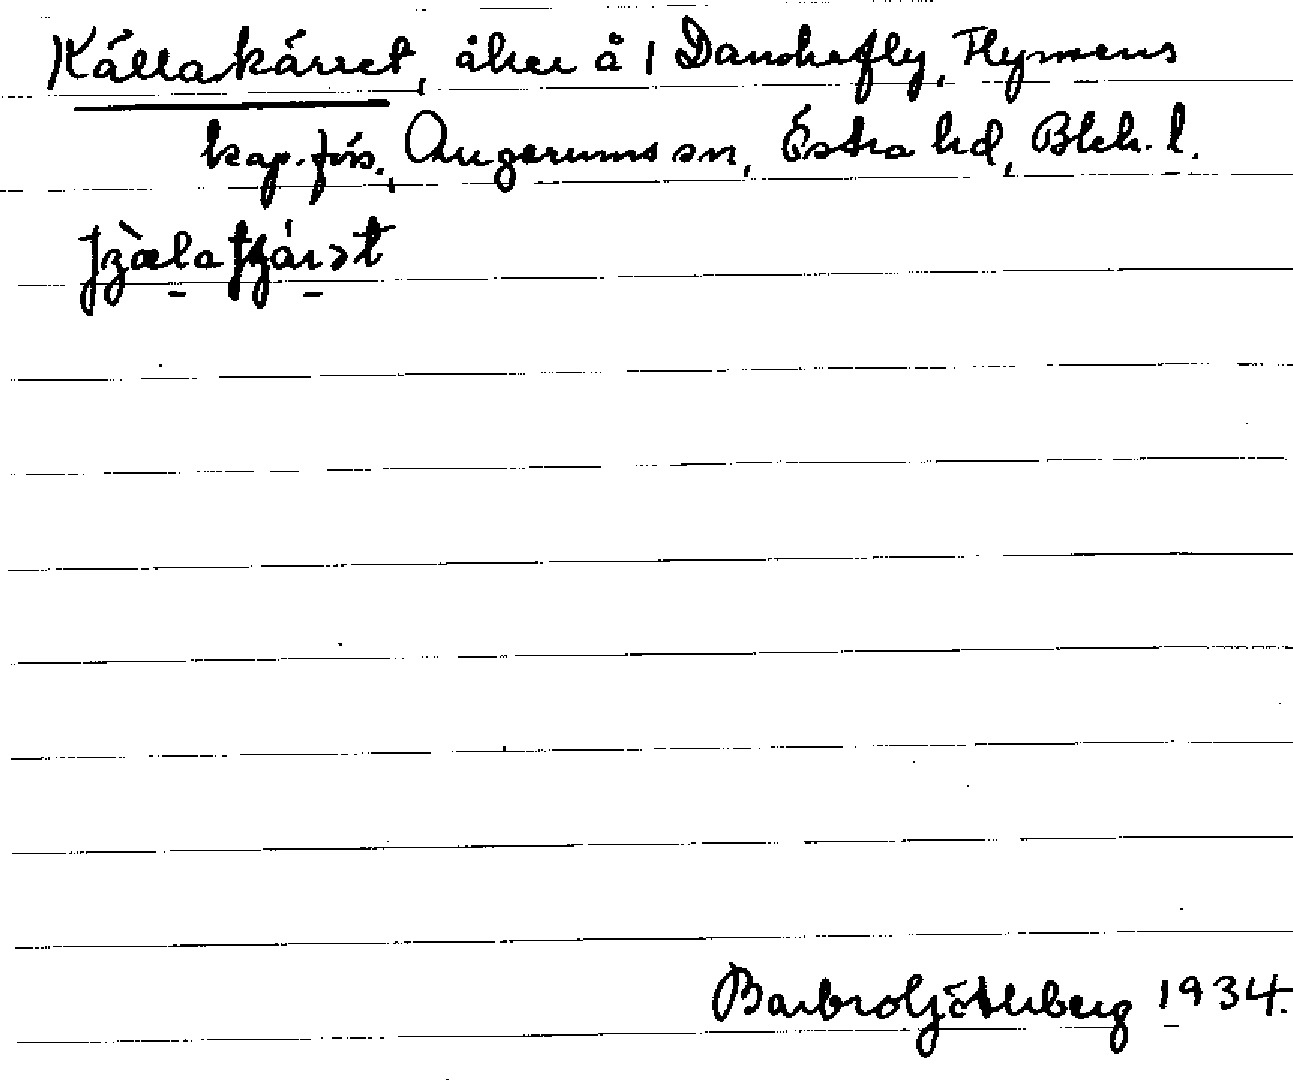 Källakärret, åker å 1 Danskefly, Flymens
kap.förs., Augerums sn, Östra hd, Blek. l.
Barbro Götherberg 1934.